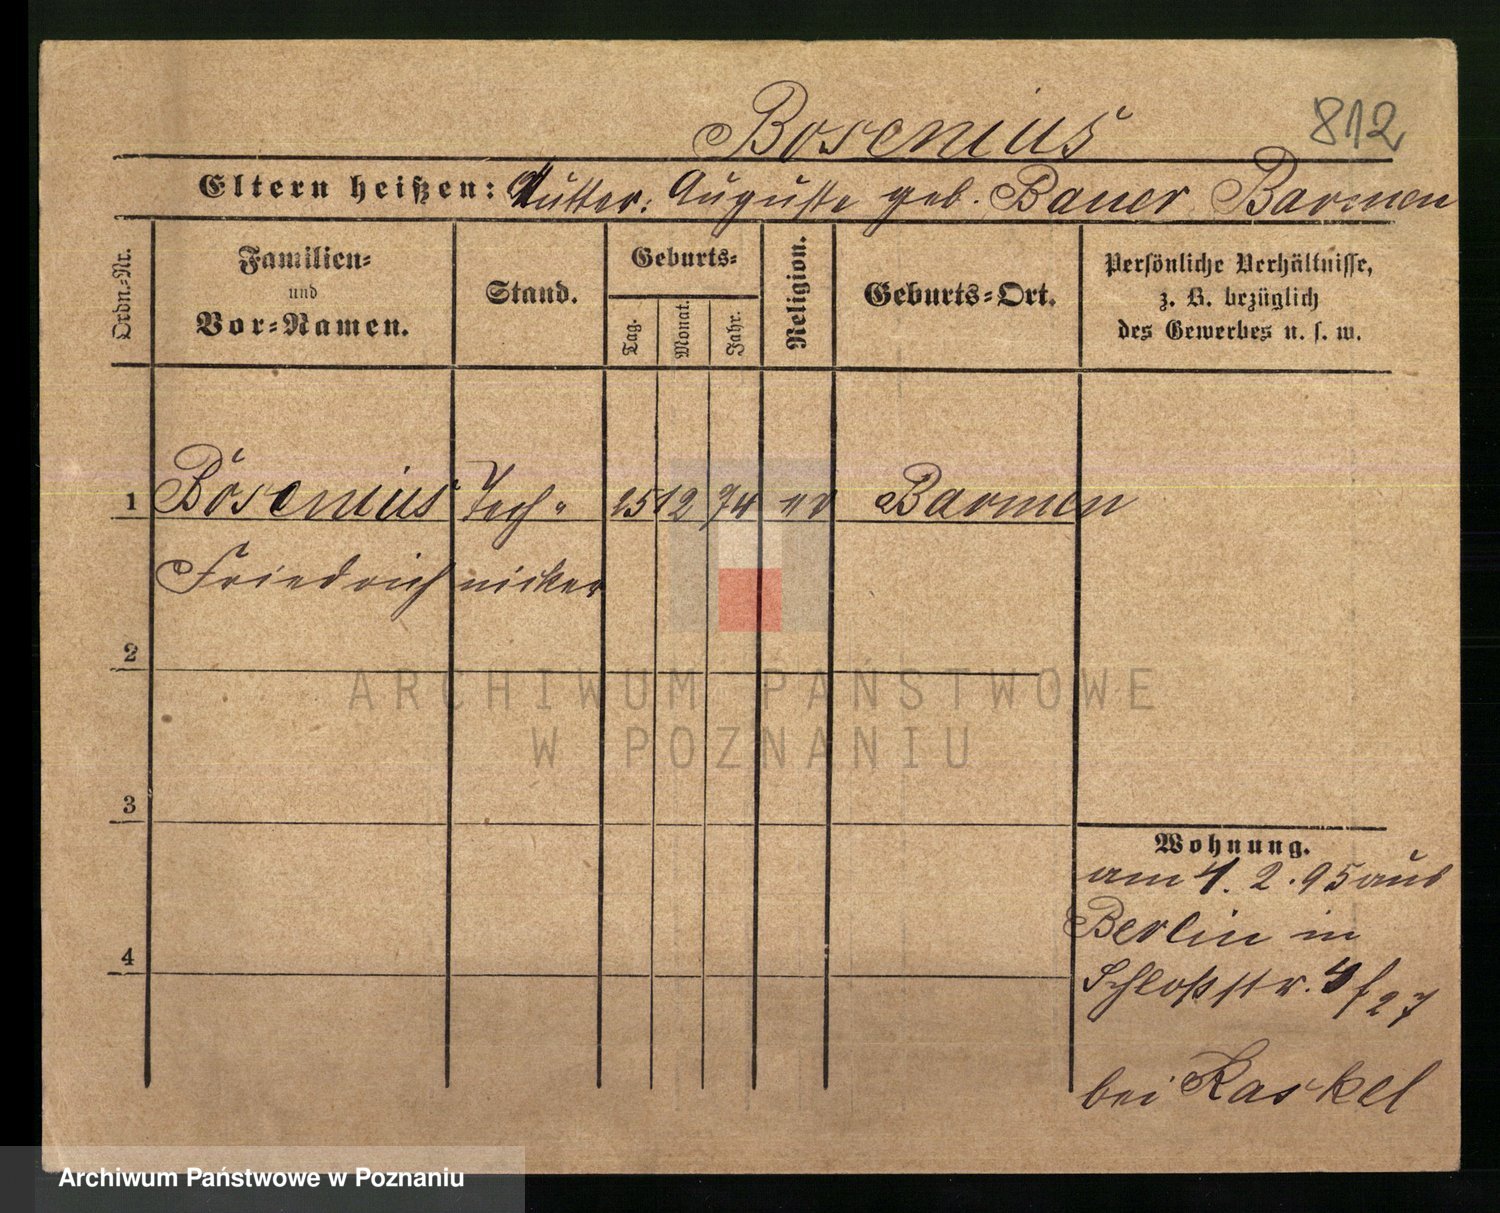 Bosenius
812
Eltern heißen: Mutter: Auguste geb. Bauer Barmen
Ordn.-Nr.
Familien-
und
Vor-Namen.
Stand.
Geburts-
Tag.
Monat.
Jahr.
Religion.
Geburts-Ort.
Persönliche Verhältnisse,
z. B. bezüglich
des Gewerbes u. s. w.
1 Bosenius Tech- 25 12 74 ev Barmen
Friedrich nicker
2
3
4
Wohnung.
am 4. 2. 95 aus
Berlin in
Schloßstr. 4
bei Kaskel
ARCHIWUM PAŃSTWOWE
W POZNANIU
Archiwum Państwowe w Poznaniu